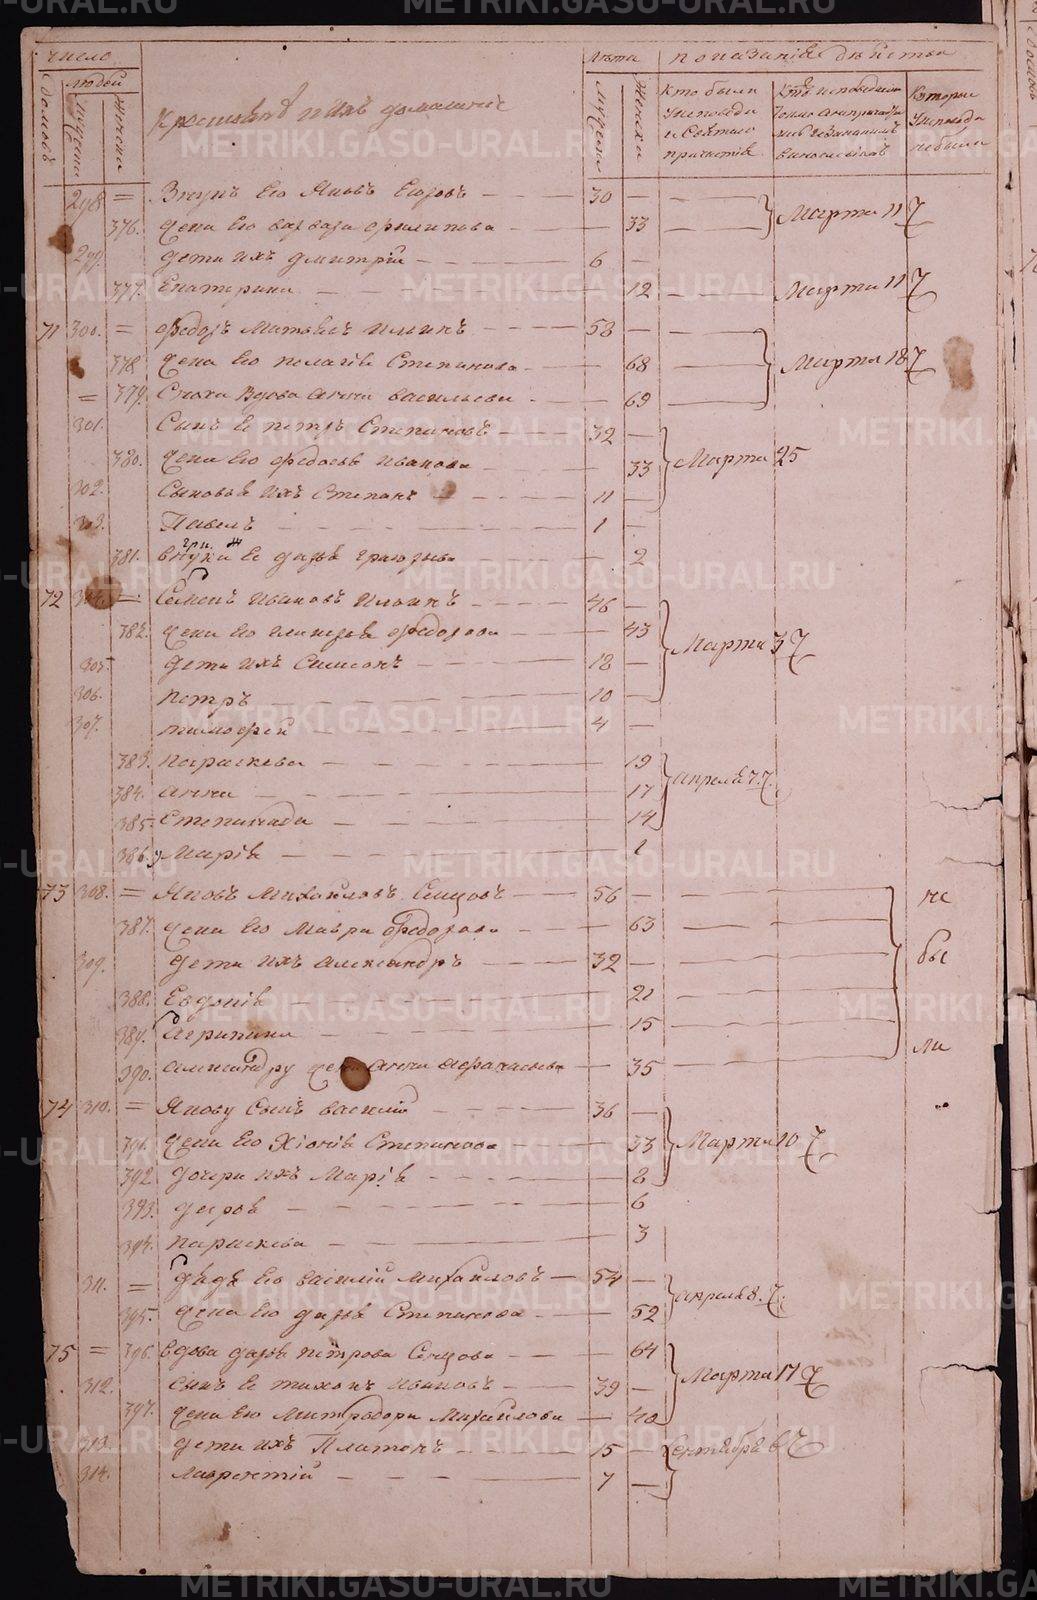 число
людей
домовъ
Мущины
Женски
Крестьянѣ и ихъ домашніе
Лѣта
Мущины
Женски
показанія дѣйства
Кто были исповеди и Святаго причастія
Кто исповедались токмо а непричастились и за каковымъ винословіемъ
Которыи исповеди небыли
298 = Внукъ его Яковъ Егоровъ 30
376. Жена его варвара филипова 33
Марта 11 7
299. дети ихъ дмитрій 6
377. Екатерина 12
Марта 11 7
71 300. = Федоръ Матвѣевъ Ильинъ 58
378 жена его пелагія Степанова 68
Марта 18 7
= 379. Сноха Вдова анна васильева 69
301. Сынъ ее петръ Степановъ 32
380. жена его федосья иванова 33
Марта 25
302. Сыновья ихъ Степанъ 11
303. Павелъ 1
381. внука ее дарья 2
72 304. = Семенъ ивановъ Ильинъ 46
382. жена его гликерья федорова 43
Марта 3 7
305 дети ихъ Симеонъ 18
306. петръ 10
307. тимофей 4
383. параскева 19
384. анна 17
апреля 7. 7.
385 Степанида 14
386. Марія 1
73 308. = Яковъ Михайловъ Сенцовъ 56
не
387. жена его Мавра федорова 63
309. дети ихъ александръ 32
бы
388. Евдокія 21
389. агрипина 15
ли
390. александру жена анна афанасьева 35
74 310. = Якову Сынъ василій 36
391. жена его Хіонія Степанова 33
Марта 10 7
392. дочри ихъ Марія 8
393. 6
394. параскева 3
311. = дядя его василій Михайловъ 54
395. жена его дарья Степанова 52
апреля 8. 7.
75 = 396. вдова дарья петрова Сенцова 64
312. сынъ ее тихонъ ивановъ 39
Марта 17 7
397. жена его Митродора Михайлова 40
313. дети ихъ Платонъ 15
Сентября 6
314. лаврентій 7
METRIKI.GASO-URAL.RU